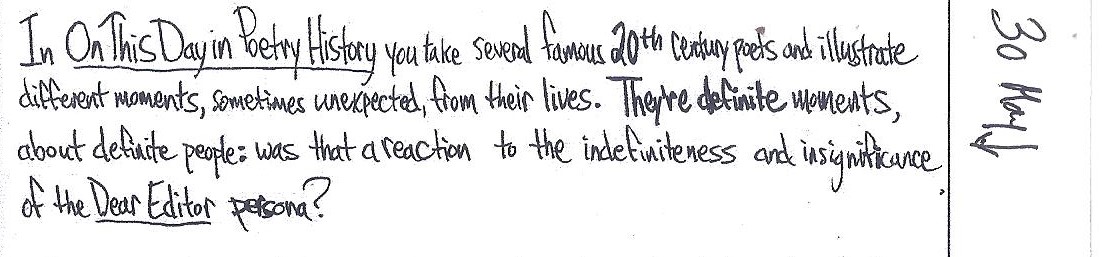 In On This Day in Poetry History you take several famous 20th century poets and illustrate
different moments, sometimes unexpected, from their lives. They're definite moments,
about definite people: was that a reaction to the indefiniteness and insignificance
of the Dear Editor persona?
30 May